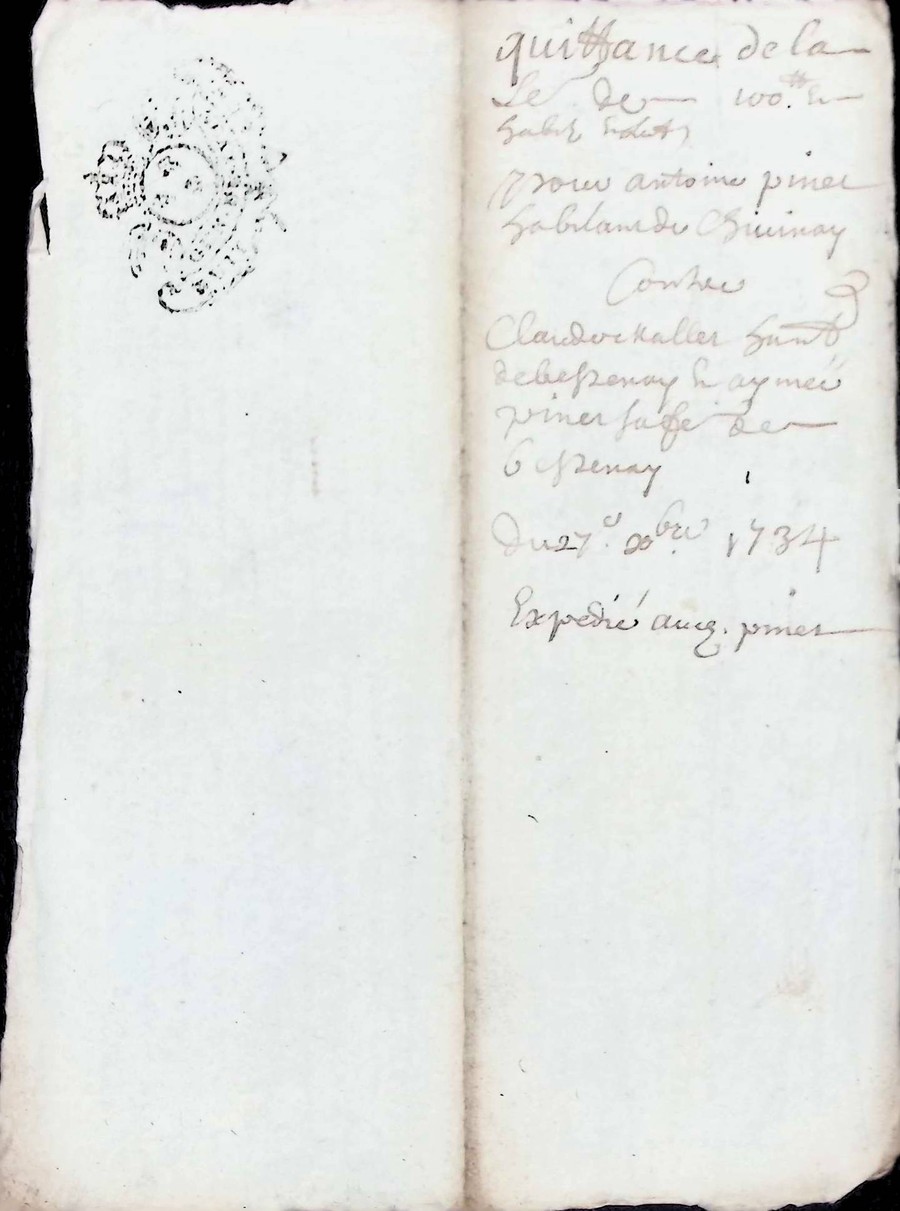 quittance de la
Se de 100.tt &
habit & dott
pour antoine piner
habitant de Chivinay
Contre
Claude Kaller hant
de bessenay & aymeé
piner sa fe de
bessenay
Du 27e. xbre. 1734
Expedié aud. piner